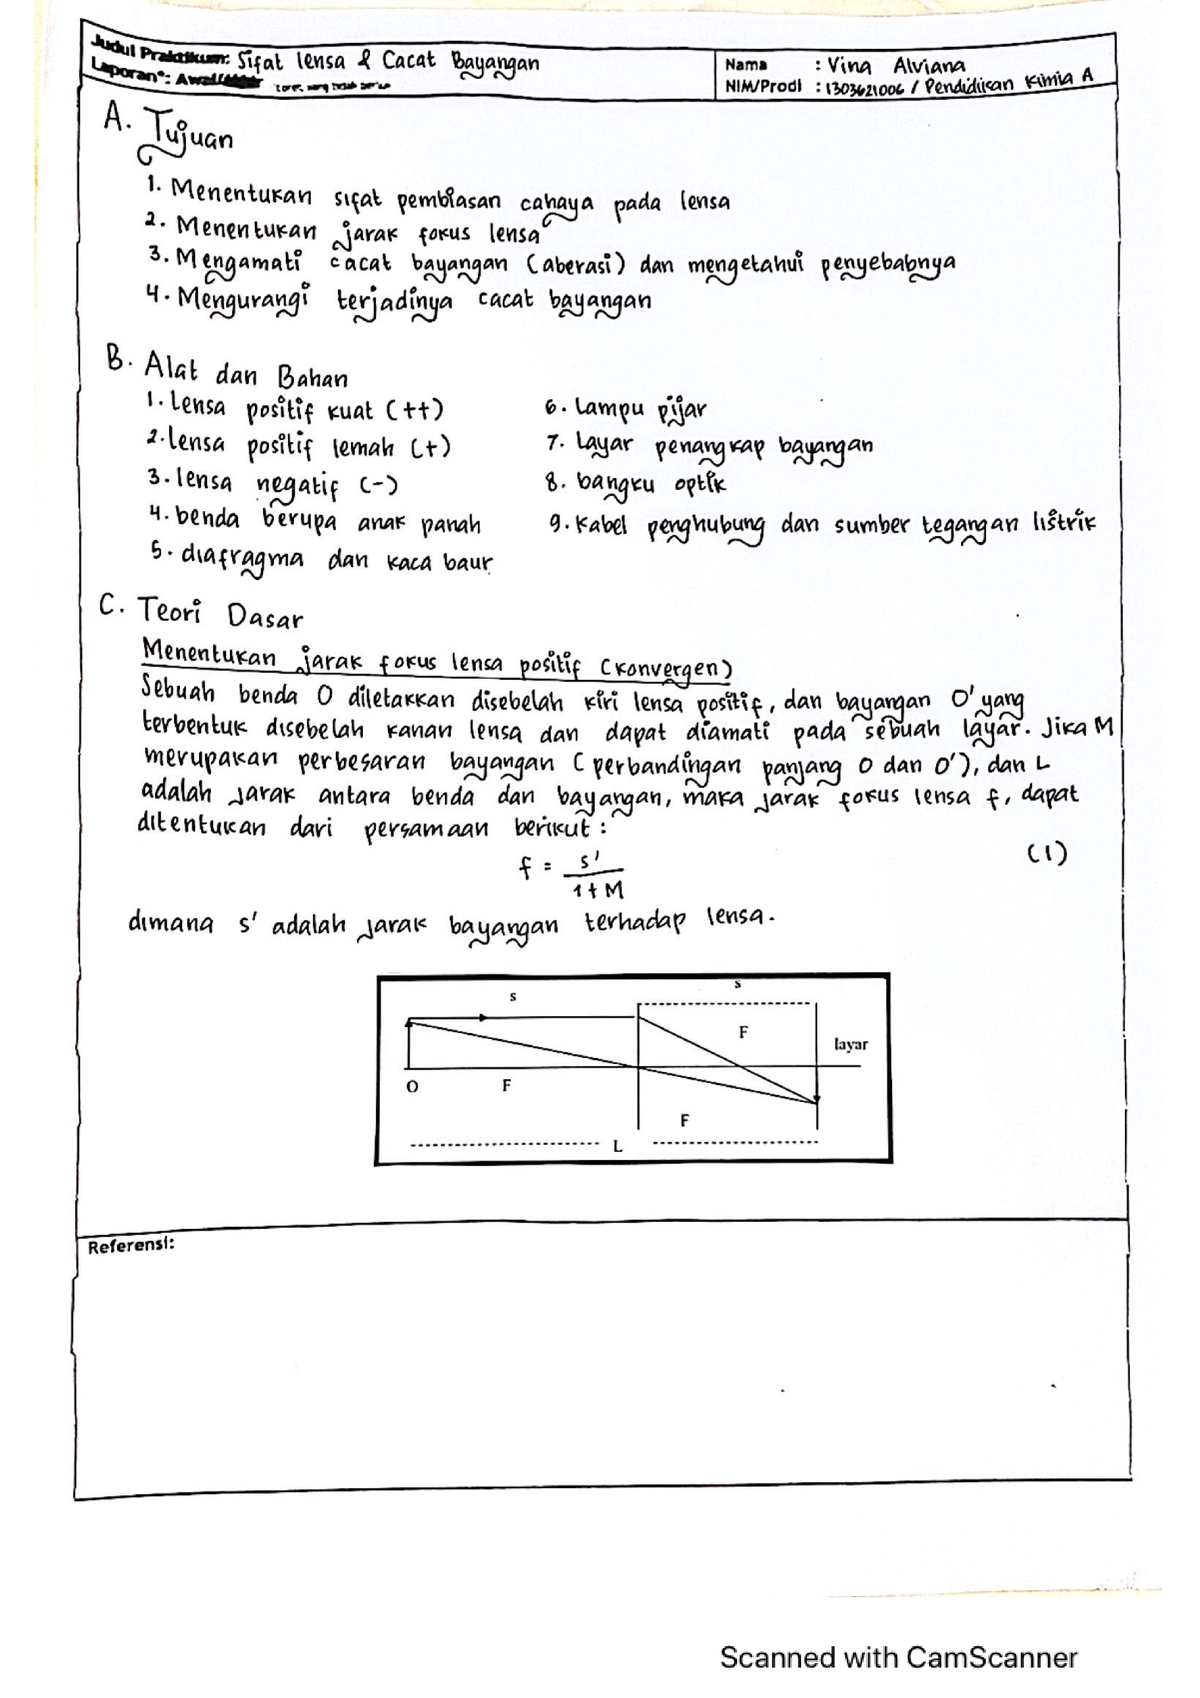 Judul Praktikum: Sifat lensa & Cacat Bayangan
Laporan*: Awal/
Nama : Vina Alviana
NIM/Prodi : 1303621006 / Pendidikan Kimia A
A. Tujuan
1. Menentukan sifat pembiasan cahaya pada lensa
2. Menentukan jarak fokus lensa
3. Mengamati cacat bayangan (aberasi) dan mengetahui penyebabnya
4. Mengurangi terjadinya cacat bayangan
B. Alat dan Bahan
1. lensa positif kuat (++)
2. lensa positif lemah (+)
3. lensa negatif (-)
4. benda berupa anak panah
5. diafragma dan kaca baur
6. lampu pijar
7. layar penangkap bayangan
8. bangku optik
9. kabel penghubung dan sumber tegangan listrik
C. Teori Dasar
Menentukan jarak fokus lensa positif (konvergen)
Sebuah benda O diletakkan disebelah kiri lensa positif, dan bayangan O' yang
terbentuk disebelah kanan lensa dan dapat diamati pada sebuah layar. Jika M
merupakan perbesaran bayangan (perbandingan panjang O dan O'), dan L
adalah jarak antara benda dan bayangan, maka jarak fokus lensa f, dapat
ditentukan dari persamaan berikut :
f = s' / 1+M (1)
dimana s' adalah jarak bayangan terhadap lensa.
s
s
F
layar
O
F
F
L
Referensi:
Scanned with CamScanner